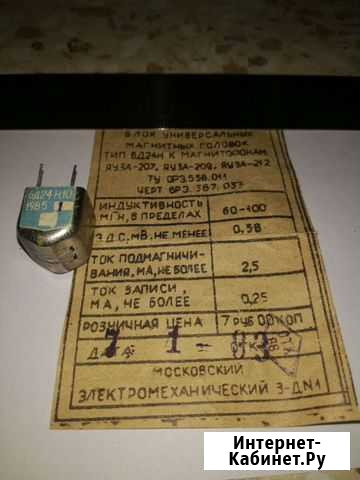 БЛОК УНИВЕРСАЛЬНЫХ
МАГНИТНЫХ ГОЛОВОК
ТИП 6Д24Н К МАГНИТОФОНАМ
ЯУЗА-207, ЯУЗА-209, ЯУЗА-212
ТУ 0РЭ.558.011
ЧЕРТ 6РЭ.367.057
ИНДУКТИВНОСТЬ МГН, В ПРЕДЕЛАХ 60-100
Э.Д.С., МВ, НЕ МЕНЕЕ 0,38
ТОК ПОДМАГНИЧИ-
ВАНИЯ, МА, НЕ БОЛЕЕ 2,5
ТОК ЗАПИСИ,
МА, НЕ БОЛЕЕ 0,25
РОЗНИЧНАЯ ЦЕНА 7 РУБ 00 КОП
ДАТА
МОСКОВСКИЙ
ЭЛЕКТРОМЕХАНИЧЕСКИЙ З-Д N1
6Д24Н1О
1985
Интернет-
Кабинет.Ру